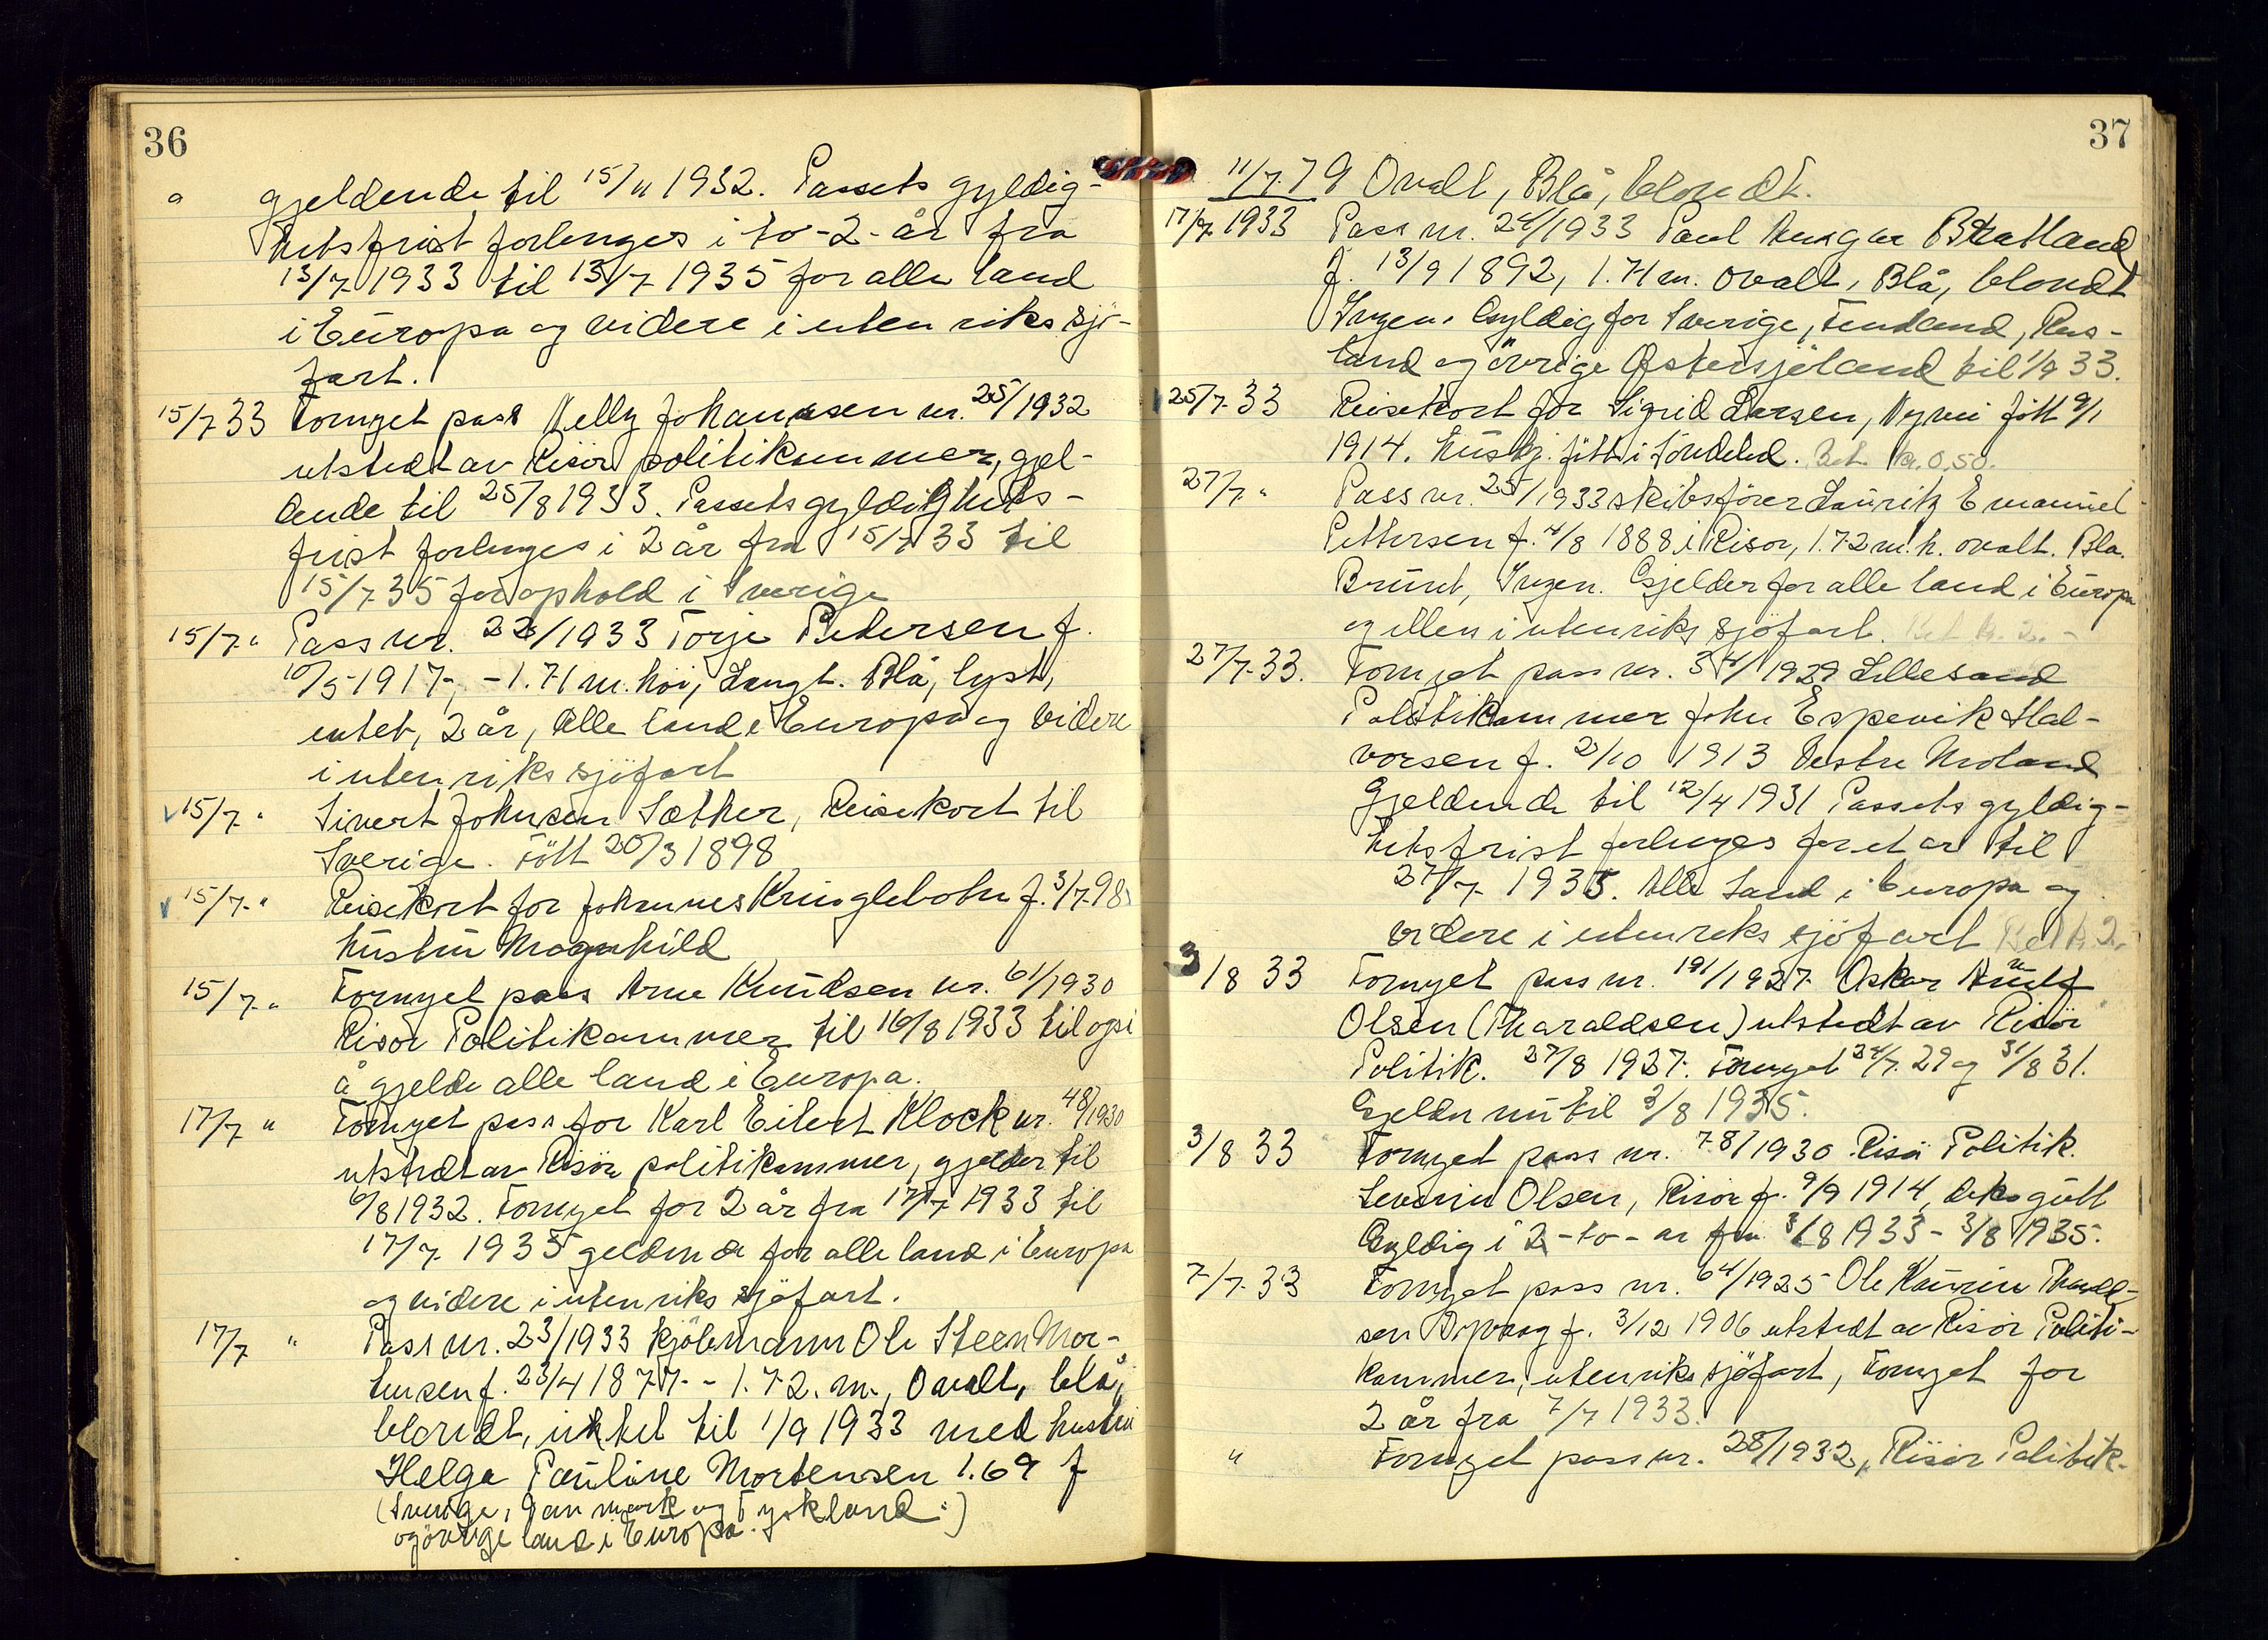 36
gjeldende til 15/11 1932. Passets gyldig-
hetsfrist forlenges i to-2-år fra
13/7 1933 til 13/7 1935 for alle land
i Europa og videre i utenriks sjö-
fart.
15/7 33 Fornyet pass Nelly Johannesen nr. 25/1932
utstedt av Risör politikammer, gjel-
dende til 25/8 1933. Passets gyldighets-
frist forlenges i 2 år fra 15/7 33 til
15/7 35 for ophold i Sverige
15/7 " Pass nr. 22/1933 Torje Pedersen f.
10/5 1917, - 1.71 m. höi, Langt. Blå, lyst,
intet, 2 år, Alle land i Europa og videre
i utenriks sjöfart
15/7 " Sivert Johnsen Sæther, Reisekort til
Sverige. Född 20/3 1898
15/7 " Reisekort for Johannes Kringlebotn f. 3/7 98
hustru Magnhild
15/7 " Fornyet pass Arne Knudsen nr. 61/1930
Risör Politikammer til 16/8 1933 til også
å gjelde alle land i Europa.
17/7 " Fornyet pass for Karl Eilert Klock nr. 48/1930
utstedt av Risör politikammer, gjelder til
6/8 1932. Fornyet for 2 år fra 17/7 1933 til
17/7 1935 geldende for alle land i Europa
og videre i utenriks sjöfart.
17/7 " Pass nr. 23/1933 kjöbmann Ole Steen Mor-
tensen f. 23/4 1877 - 1.72. m., Ovalt, blå,
blondt, intet til 1/9 1933 med hustru
Helga Pauline Mortensen 1.69 f
(Sverige, Danmark og Tyskland :)
og övrige land i Europa.
37
11/7 79 Ovalt, Blå, blondt.
17/7 1933 Pass nr. 24/1933 Paul Bratland
f. 13/9 1892, 1.71 m. ovalt, Blå, blondt
Ingen. Gyldig for Sverige, Finland, Rus-
land og övrige Östersjöland til 1/9 33.
25/7 33 Reisekort for Sigrid Larsen, fött 9/1
1914. Hushj. fött i Söndeled. Bet. kr. 0,50.
27/7 " Pass nr. 25/1933 skibsförer Lauritz Emanuel
Pettersen f. 4/8 1888 i Risör, 1.72 m. h. ovalt. Blå.
Brunt, Ingen. Gjelder for alle land i Europa
og ellers i utenriks sjöfart. Bet kr. 2.-
27/7 33. Fornyet pass nr. 34/1929 Lillesand
Politikammer John Espevik Hal-
vorsen f. 2/10 1913 Vestre Moland
Gjeldende til 12/4 1931 Passets gyldig-
hetsfrist forlenges for et år til
27/7 1935. Alle land i Europa og
videre i utenriks sjöfart Bet kr 2,-
3/8 33 Fornyet pass nr. 191/1927 Oskar
Olsen (Tharaldsen) utstedt av Risör
Politik. 27/8 1927. Fornyet 24/7 29 og 31/8 31.
Gjelder nu til 3/8 1935.
3/8 33 Fornyet pass nr. 78/1930 Risör Politik.
Severin Olsen, Risör f. 9/9 1914, deksgutt
Gyldig i 2-to-år fra 3/8 1933 - 3/8 1935.
7/7 33 Fornyet pass nr. 64/1925 Ole Kaurin Tharald-
sen Dypvaag f. 3/12 1906 utstedt av Risör Politi-
kammer, utenriks sjöfart, Fornyet for
2 år fra 7/7 1933.
" Fornyet pass nr. 28/1932, Risör Politik.